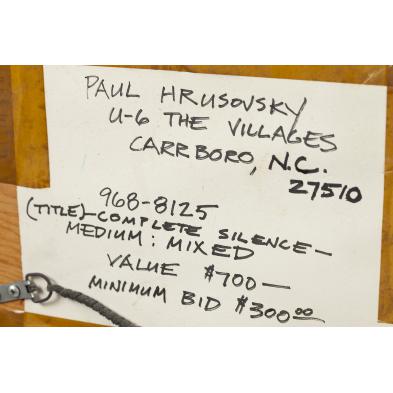 PAUL HRUSOVSKY
U-6 THE VILLAGES
CARRBORO, N.C.
27510
968-8125
(TITLE)-COMPLETE SILENCE-
MEDIUM: MIXED
VALUE $700-
MINIMUM BID $300.00